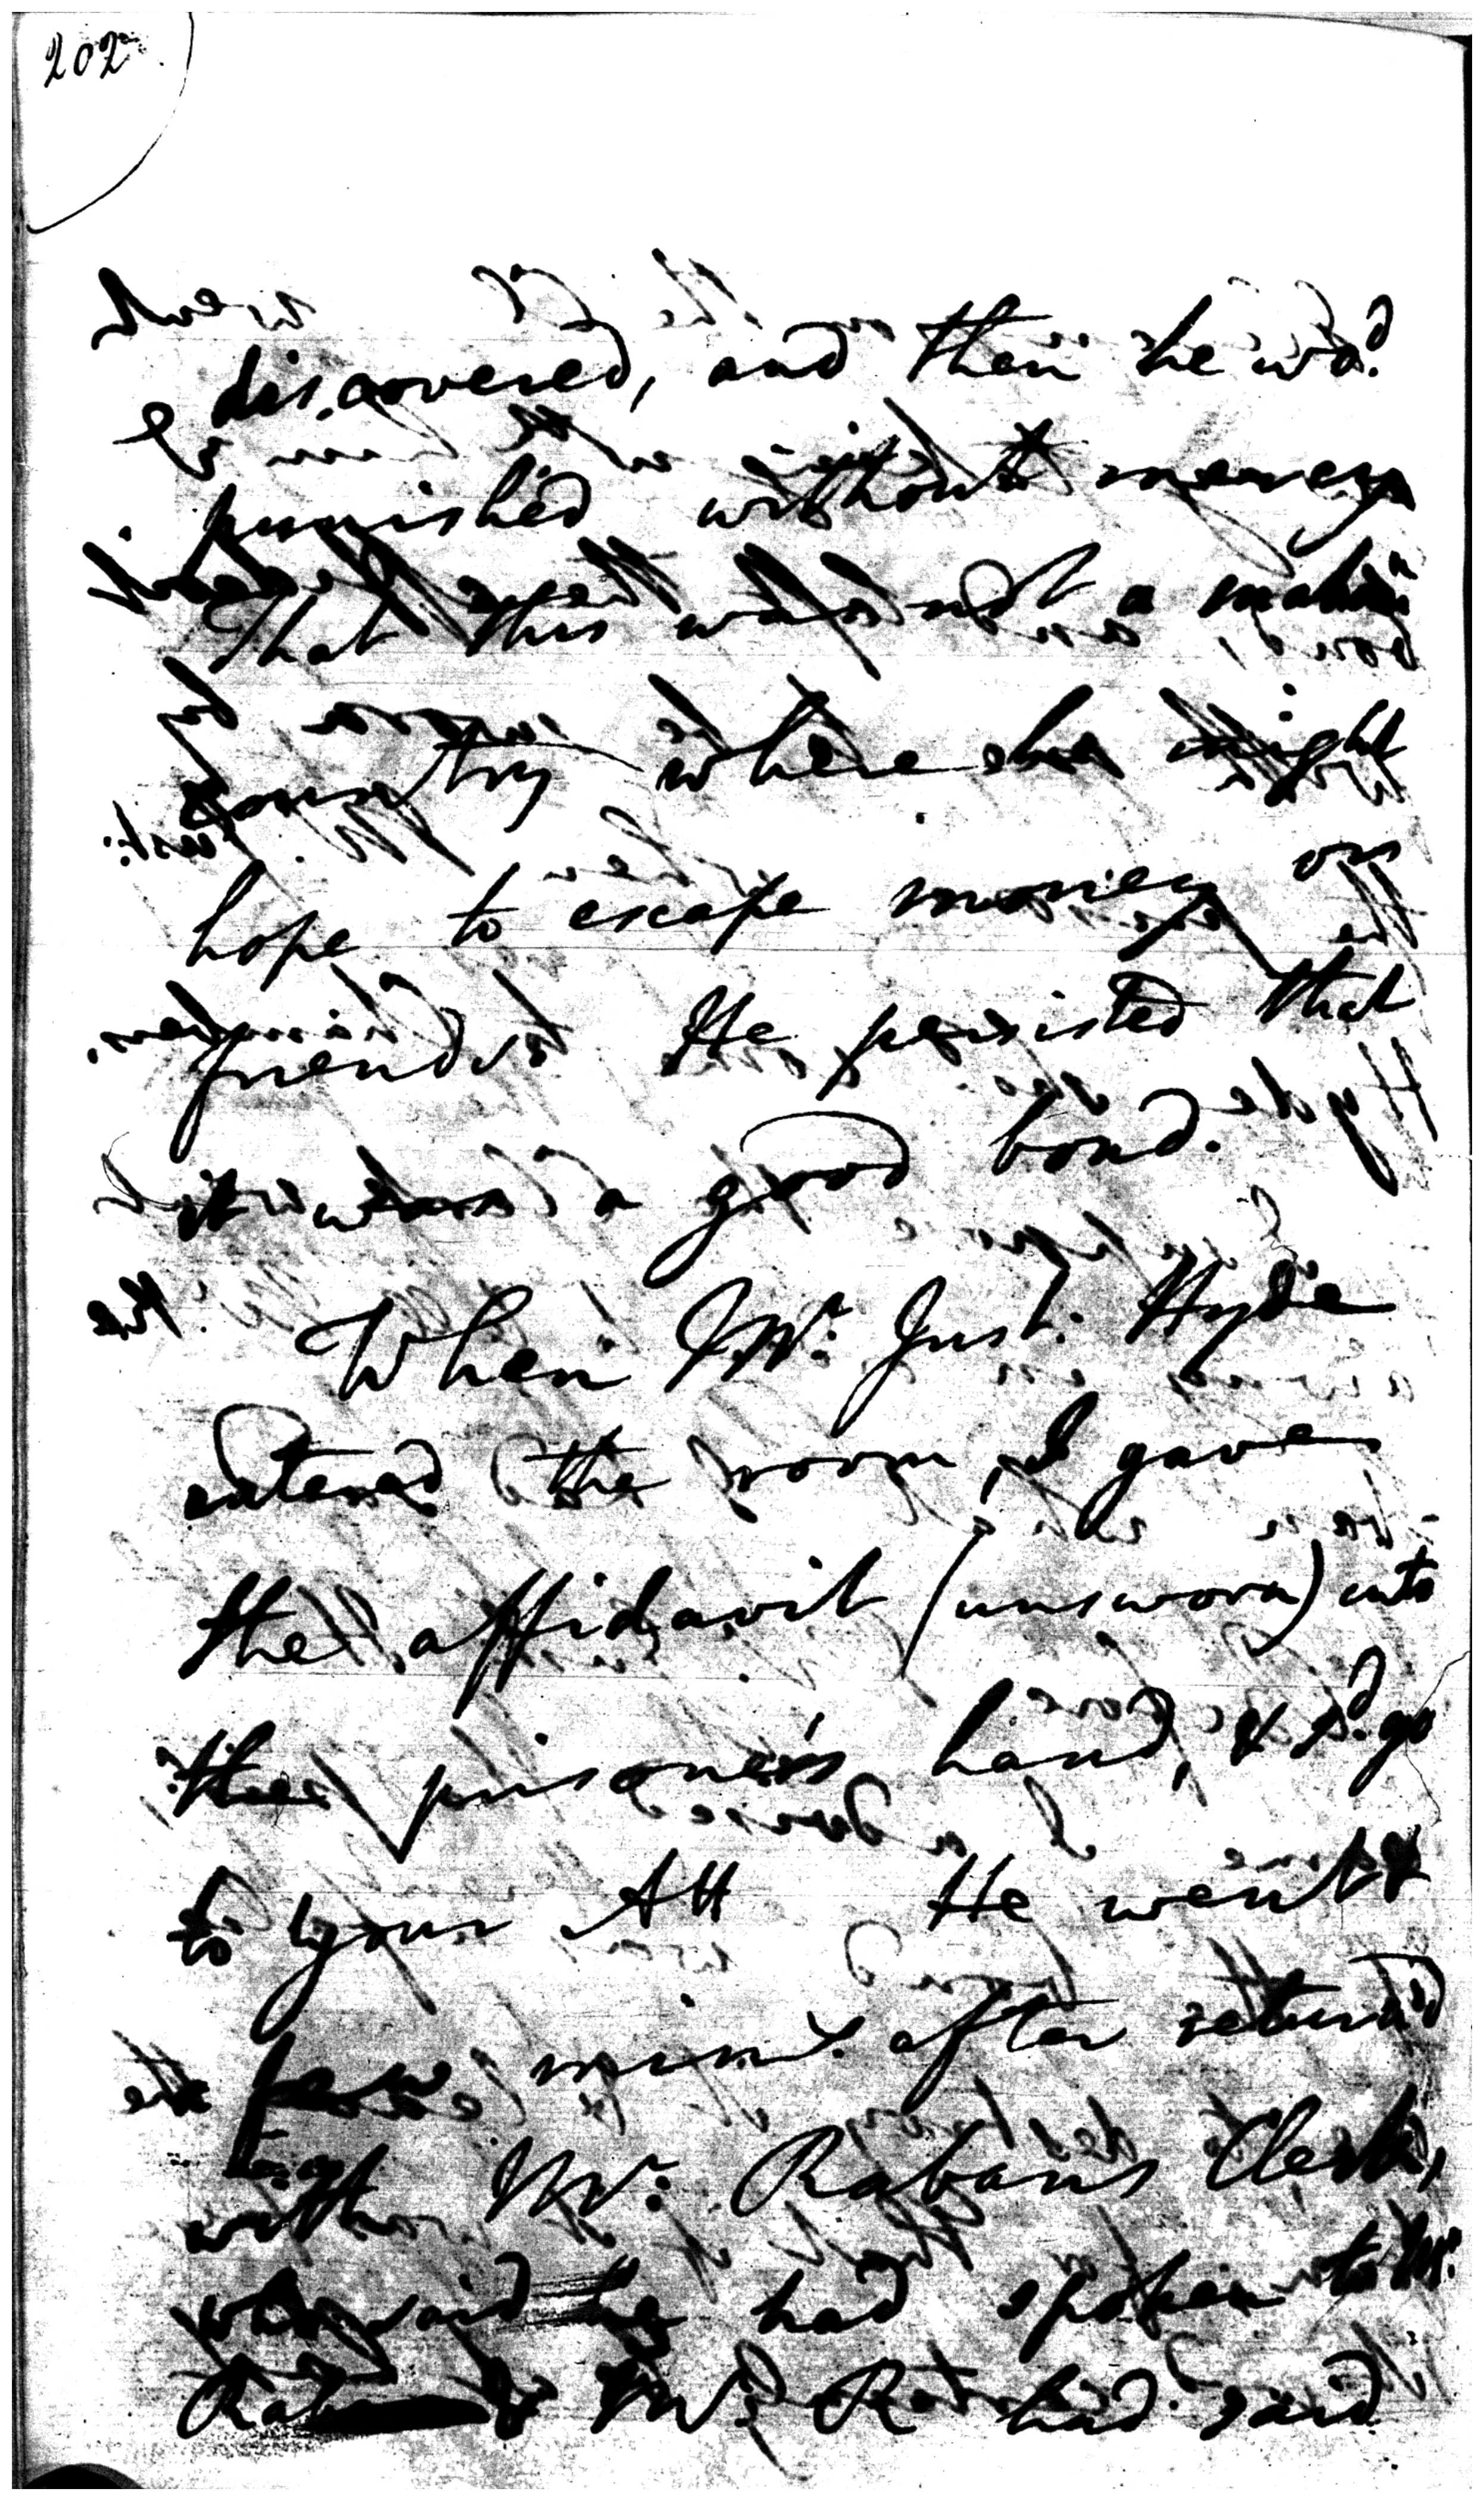 202
discovered, and then he wo.d
punished without mercy
That this was not a
country where he might
hope to escape money or
friends He persisted that
it was a good bond.
When Mr. Just: Hyde
entered the room, I gave
the affidavit (unsworn) into
the prisoner's hand, & s.d go
to your Att He went &
few min.s after return'd
with Mr. Rabans Clerk,
who said he had spoken to Mr.
Raban & Mr. R had said